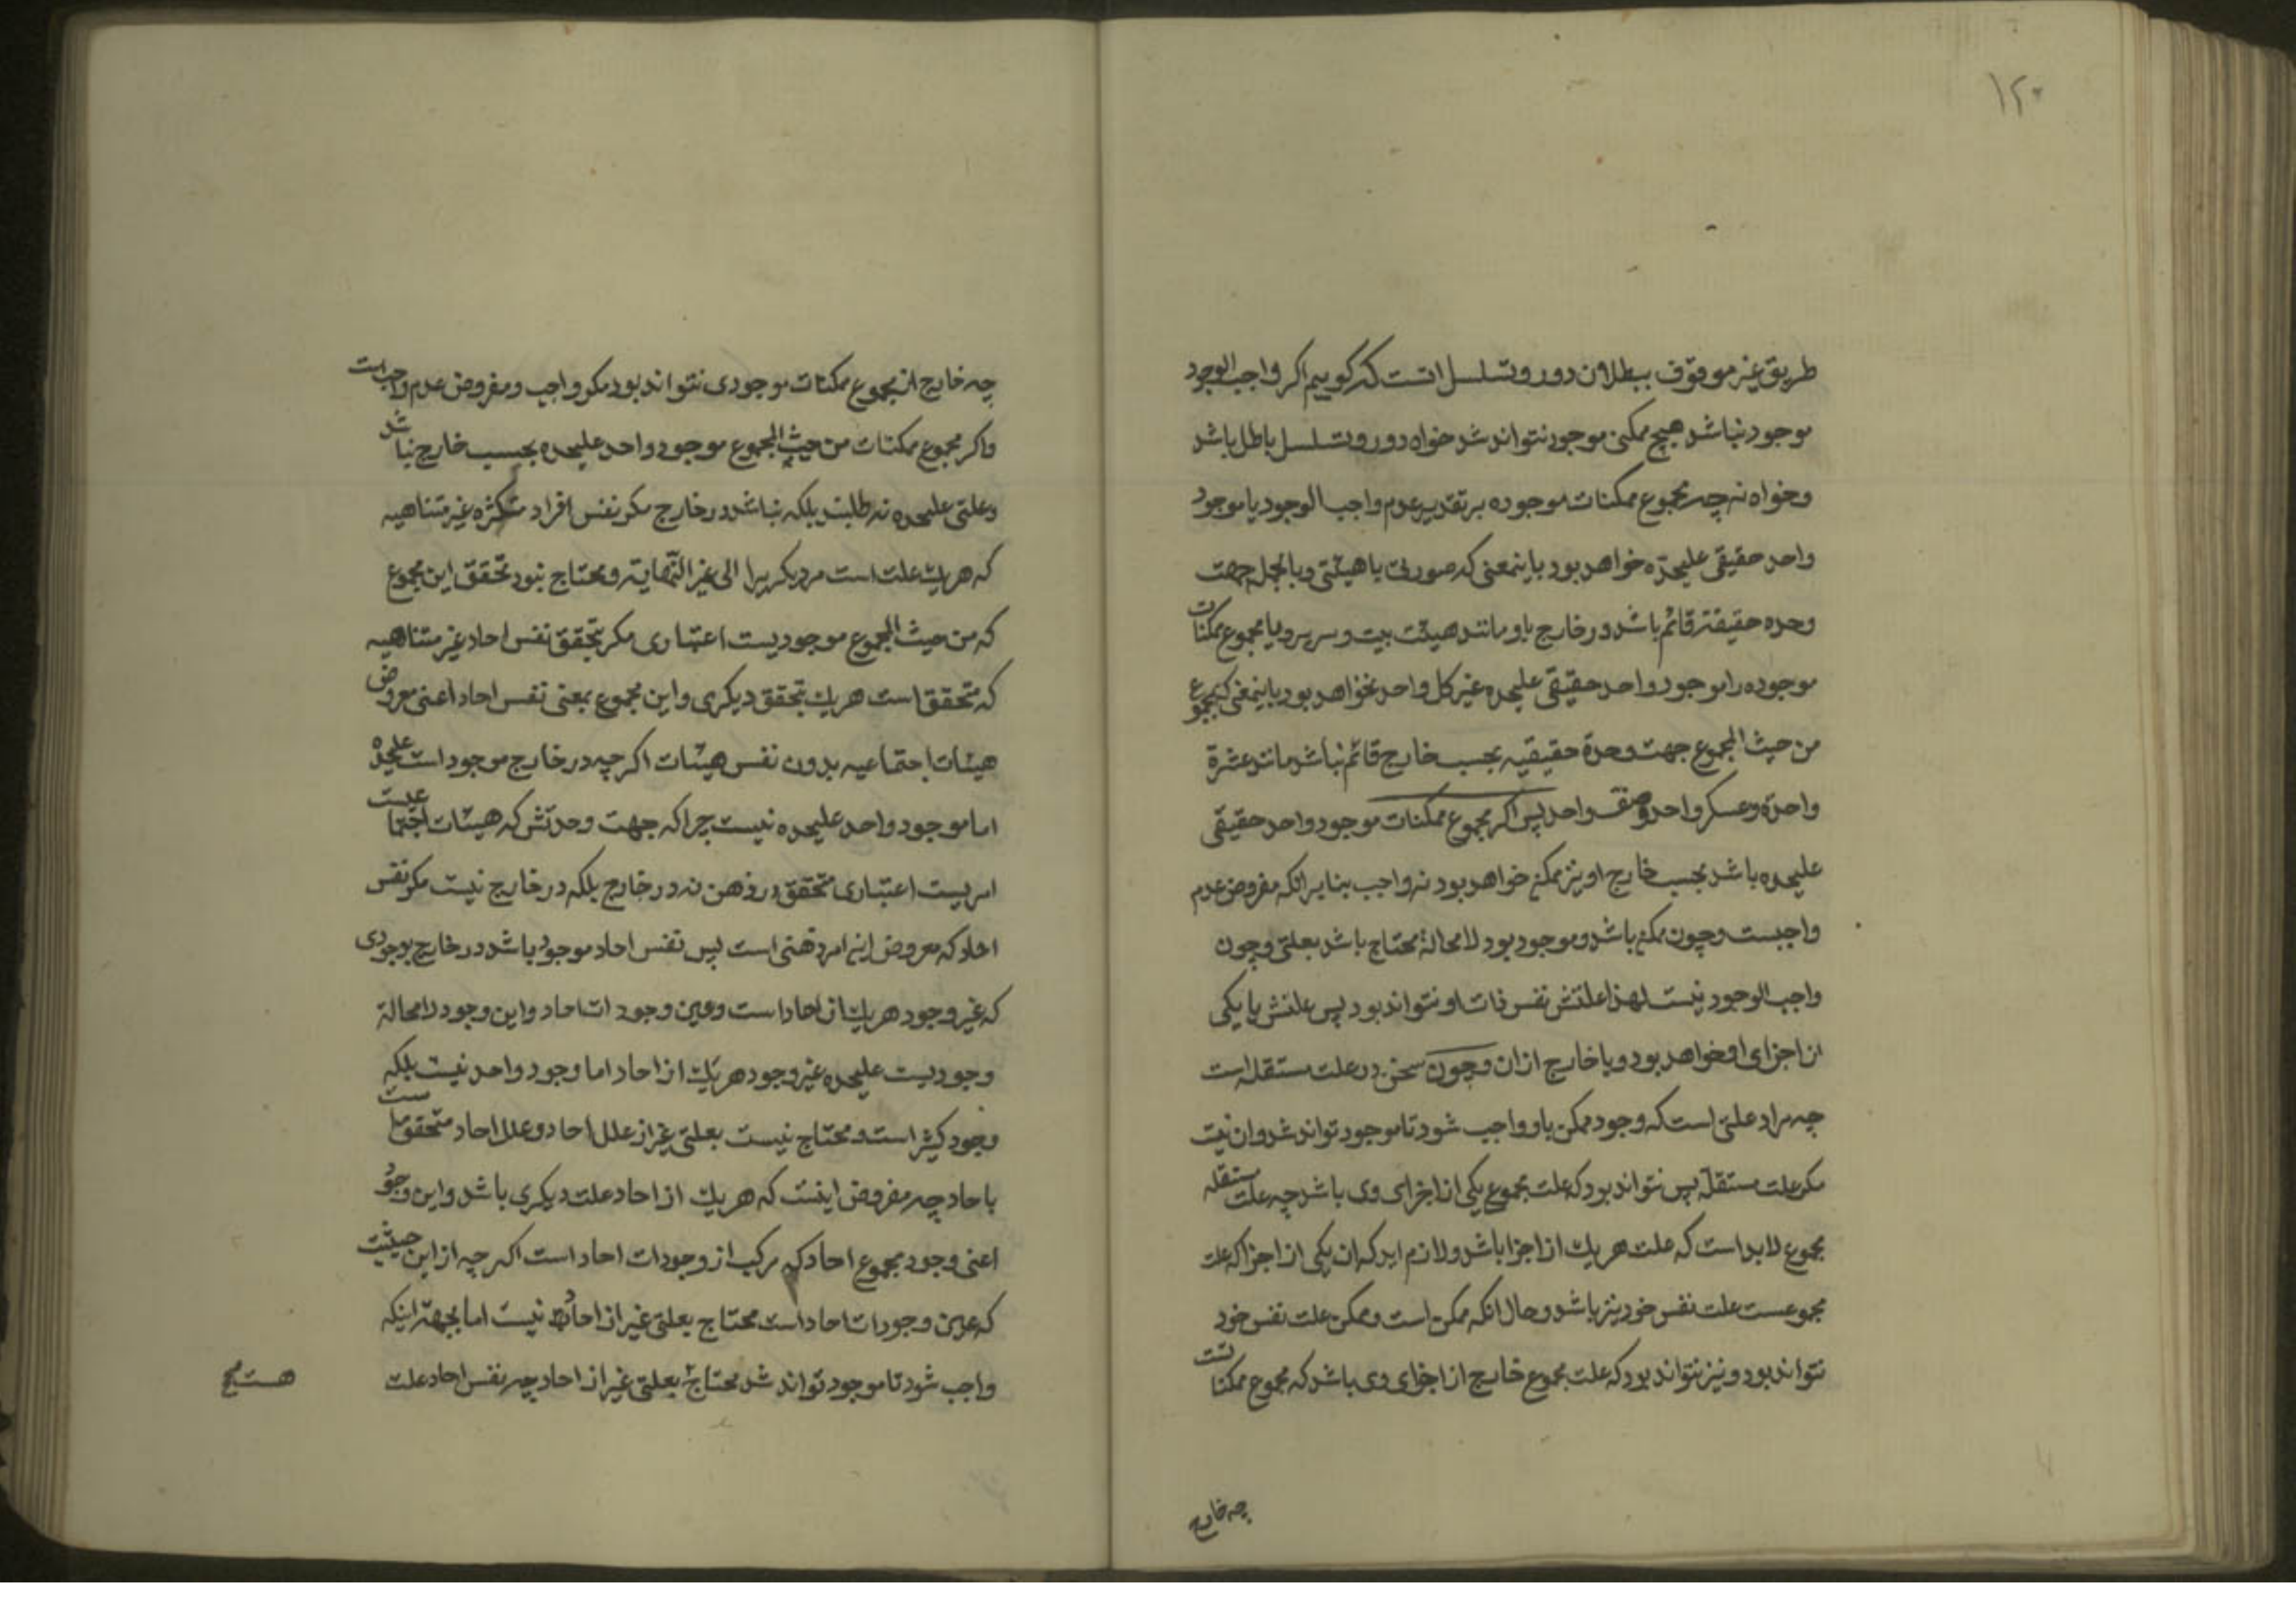 ۱۲۰
طریق غیر موقوف ببطلان دور و تسلسل انست که کوییم اکر واجب الوجود
موجود نباشد هیچ ممکنی موجود نتواند شد خواه دور و تسلسل باطل باشد
و خواه نه چه مجموع ممکنات موجوده بر تقدیر عدم واجب الوجود یا موجود
واحد حقیقی علیحده خواهد بود باینمعنی که صورتی یا هیئتی و بالجمله جهت
وحده حقیقة قائم باشد در خارج باو مانند هیئت بیت و سریر و یا مجموع ممکنات
موجوده را موجود واحد حقیقی علیحده غیر کل واحد نخواهد بود باینمعنی که بمجموع
من حیث المجموع جهت وحدة حقیقیه بحسب خارج قائم نباشد مانند عشرة
واحدة و عسکر واحد و صف واحد پس اکر مجموع ممکنات موجود واحد حقیقی
علیحده باشد بحسب خارج او نیز ممکن خواهد بود نه واجب بنابر انکه مفروض عدم
واجبست و چون ممکن باشد و موجود بود لامحالة محتاج باشد بعلتی و چون
واجب الوجود نیست لهذا علتش نفس ذات او نتواند بود پس علتش یا یکی
از اجزای او خواهد بود و یا خارج ازان و چون سخن در علت مستقله است
چه مراد علتی است که وجود ممکن باو واجب شود تا موجود تواند شد و ان نیت
مکر علت مستقله پس نتواند بود که علت مجموع یکی از اجزای وی باشد چه علت مستقله
مجموع لابد است که علت هر یک از اجزا باشد و لازم اید که ان یکی از اجزا که علت
مجموعست علت نفس خود نیز باشد و حال انکه ممکن است و ممکن علت نفس خود
نتواند بود و نیز نتواند بود که علت مجموع خارج از اجزای وی باشد که مجموع ممکنات است
چه خارج
چه خارج از مجموع ممکنات موجودی نتواند بود مکر واجب و مفروض عدم واجب است
و اکر مجموع ممکنات من حیث المجموع موجود واحد علیحده بحسب خارج نباشد
و علتی علیحده نه طلبد بلکه نباشد در خارج مکر نفس افراد متکثره غیر متناهیه
که هر یک علت است مر دیکریرا الی غیر النهایة و محتاج نبود تحقق این مجموع
که من حیث المجموع موجودیست اعتباری مکر بتحقق نفس احاد غیر متناهیه
که متحقق است هر یک بتحقق دیکری و این مجموع بمعنی نفس احاد اعنی معروض
هیئات اجتماعیه بدون نفس هیئات اکر چه در خارج موجود است علیحده
اما موجود واحد علیحده نیست چرا که جهت وحدتش که هیئات اجتماعیست
امریست اعتباری متحقق در ذهن نه در خارج بلکه در خارج نیست مکر نفس
احاد که معروض این امر ذهنی است پس نفس احاد موجود باشد در خارج بوجودی
که غیر وجود هر یک از احاد است و عین وجودات احاد و این وجود لامحالة
وجودیست علیحده غیر وجود هر یک از احاد اما وجود واحد نیست بلکه
وجود کثیر است و محتاج نیست بعلتی غیر از علل احاد و علل احاد متحقق است
باحاد چه مفروض اینست که هر یک از احاد علت دیکری باشد و این وجود
اعنی وجود مجموع احاد که مرکب از وجودات احاد است اکر چه از این حیثیت
که عین وجودات احاد است محتاج بعلتی غیر از احاد نیست اما بجهة اینکه
واجب شود تا موجود تواند شد محتاج بعلتی غیر از احاد چه نفس احاد علت